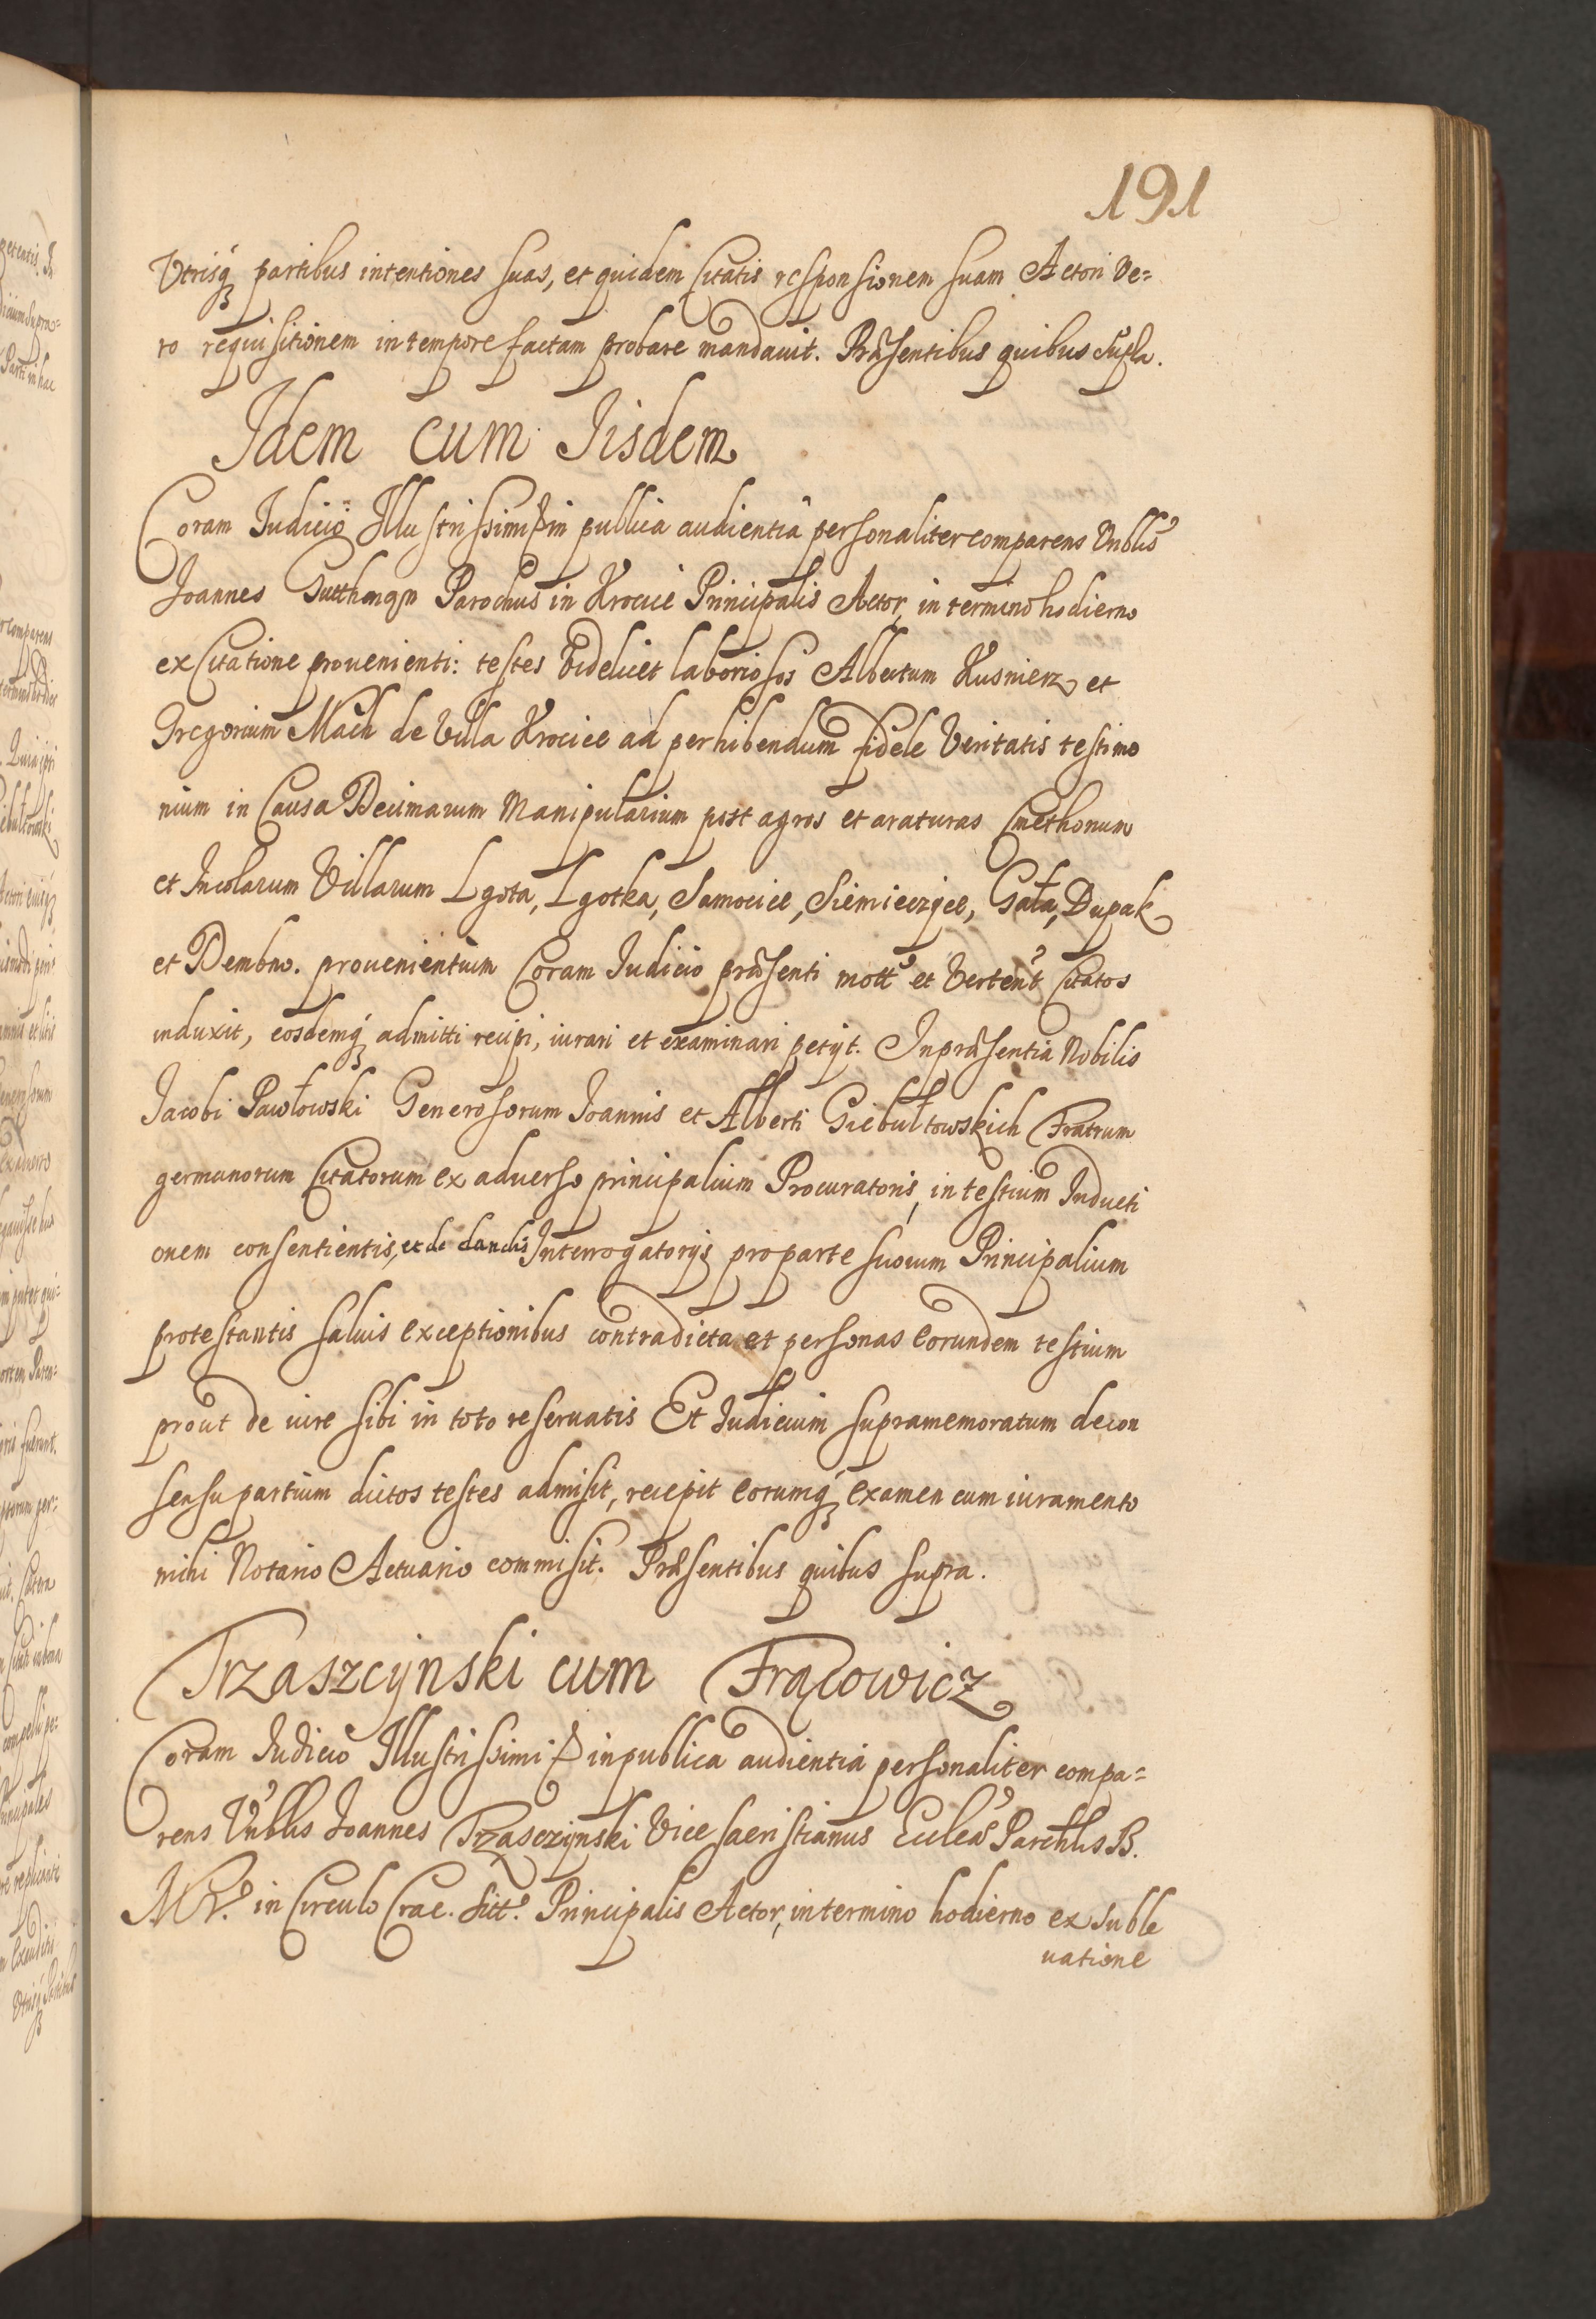 191
Utrisq́ partibus intentiones suas, et quidem Citatis responsionem suam Actori Ve=
ro requisitionem in tempore factam probare mandauit. Præsentibus quibus supra.
Idem cum Iisdem
Coram Iudicio Illustrissimi in publica audientia personaliter comparens Vnblis
Joannes Parochus in Krocice Principalis Actor, in termino hodierno
ex Citatione prouenienti: testes Videlicet laboriosos Albertum Kusnierz et
Gregorium Mach de Villa Krocice ad perhibendum fidele Veritatis testimo
nium in Causa Decimarum Manipularium post agros et araturas Cmethonum
et Incolarum Villarum Lgota, Lgotka, Samocice, Siemiczyce, Gała, Dupak
et Dembno. prouenientium Coram Iudicio præsenti mott et Vertent Citatos
induxit, eosdemq́ admitti recipi, iurari et examinari petijt. In præsentia Nobilis
Jacobi Pawłowski Generosorum Joannis et Alberti Giebułtowskich Fratrum
germanorum Citatorum ex aduerso principalium Procuratoris, in testium Inducti
onem consentientis, et de dandis Interrogatorijs pro parte suorum Principalium
protestantis saluis exceptionibus contra dicta et personas eorundem testium
prout de iure sibi in toto reseruatis Et Iudicium supramemoratum de con
sensu partium dictos testes admisit, recepit eorumq́ examen cum iuramento
mihi Notario Actuario commisit. Præsentibus quibus supra.
Trzaszcynski cum Frącowicz
Coram Iudicio Illustrissimi in publica audientia personaliter compa=
rens Vnblis Joannes Trzasczynski Vice sacristianus Eccleæ Parchlis B.
M V. in Circulo Crac. sitt. Principalis Actor, in termino hodierno ex suble
uatione